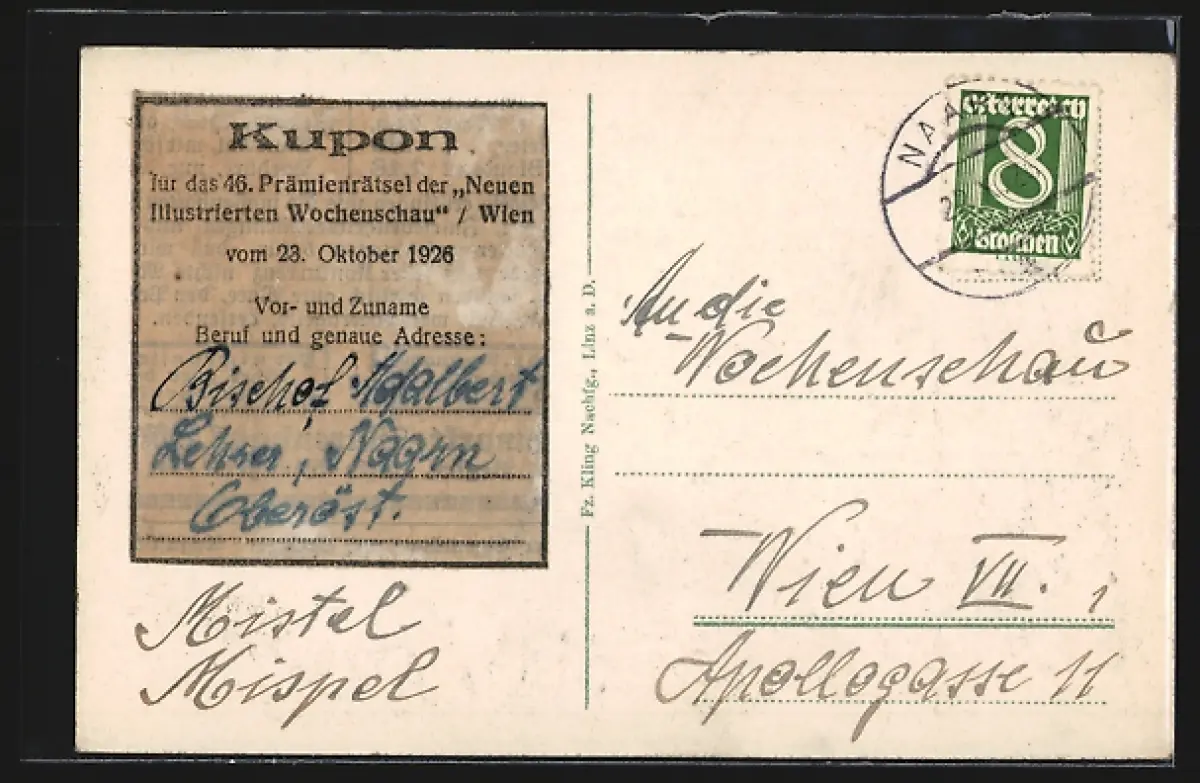 Kupon
für das 46. Prämienrätsel der „Neuen
Illustrierten Wochenschau“ / Wien
vom 23. Oktober 1926
Vor- und Zuname
Beruf und genaue Adresse:
Bischof Adalbert
Lehrer, Naarn
Oberöst.
Mistel
Mispel
Fz. Kling Nachfg., Linz a. D.
NAA
Österreich
8
Groschen
An die
Wochenschau
Wien VII.,
Apollogasse 11